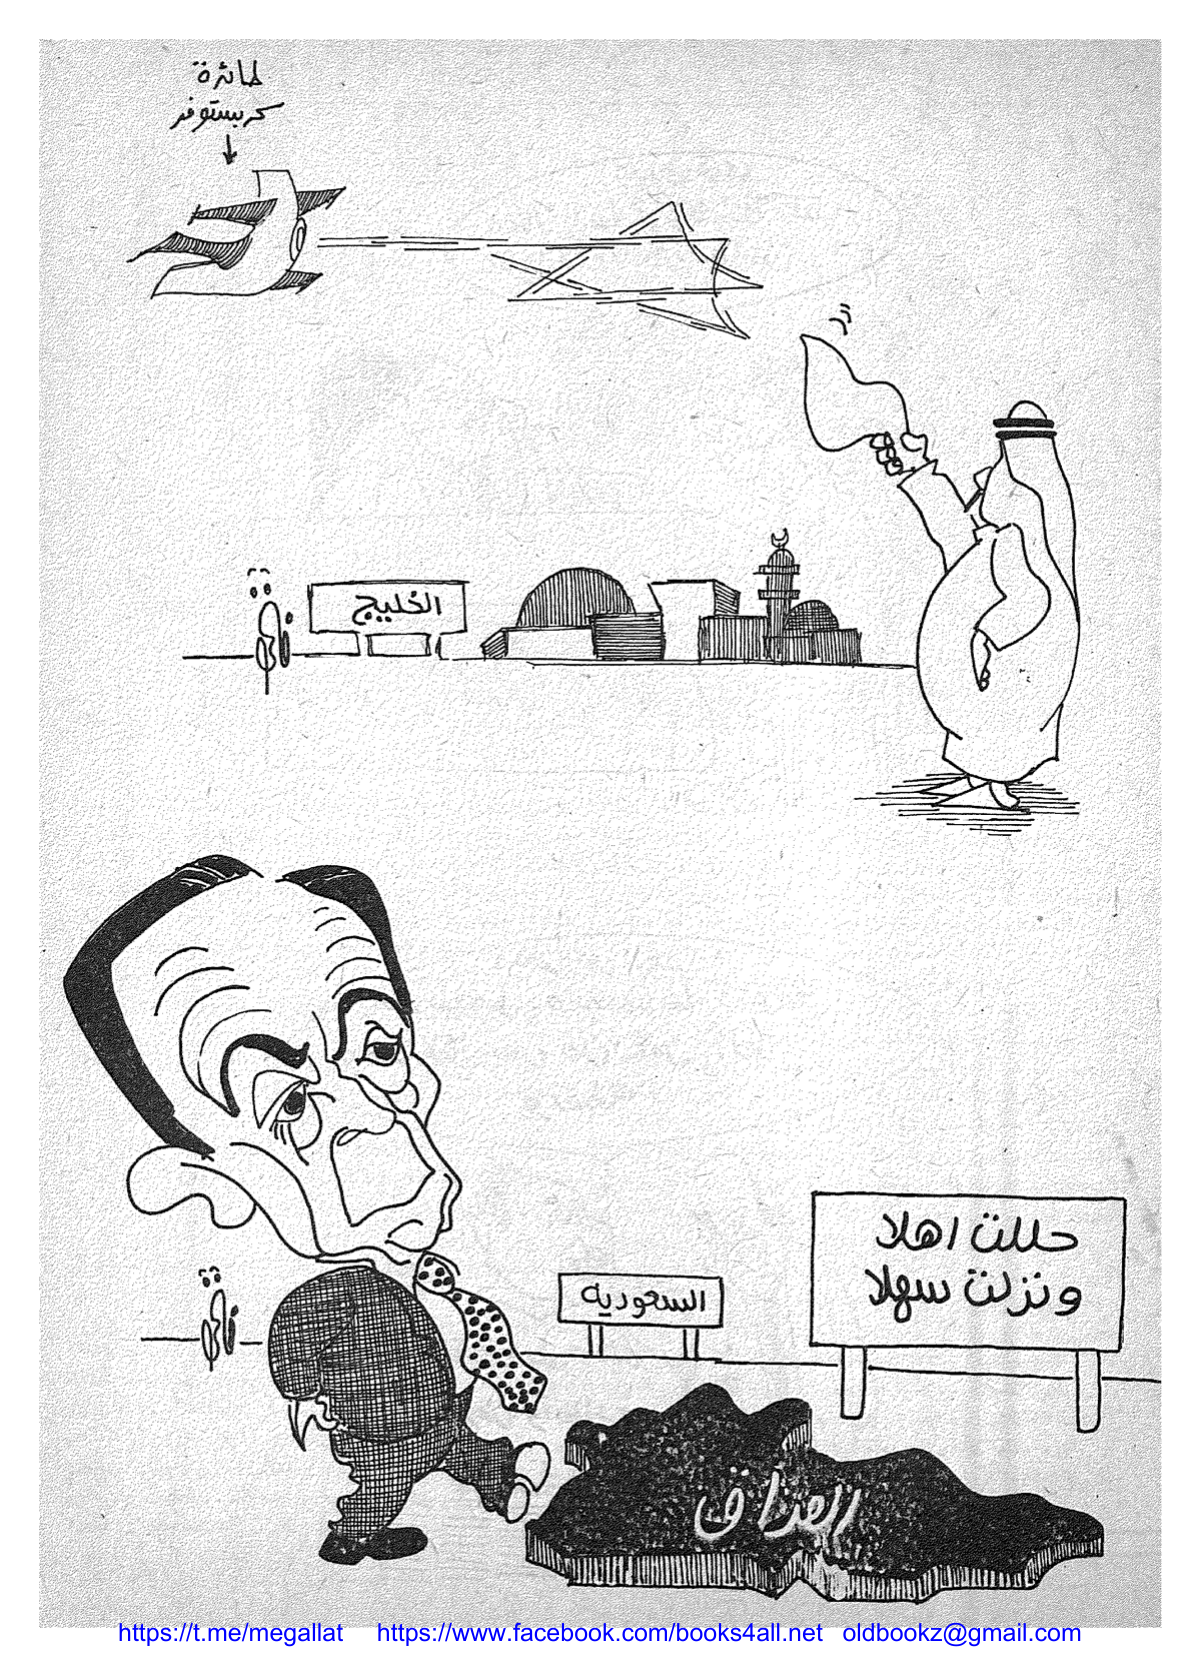 طائرة
كريستوفر
الخليج
حللت اهلا
ونزلت سهلا
السعودية
العراق
https://t.me/megallat https://www.facebook.com/books4all.net oldbookz@gmail.com